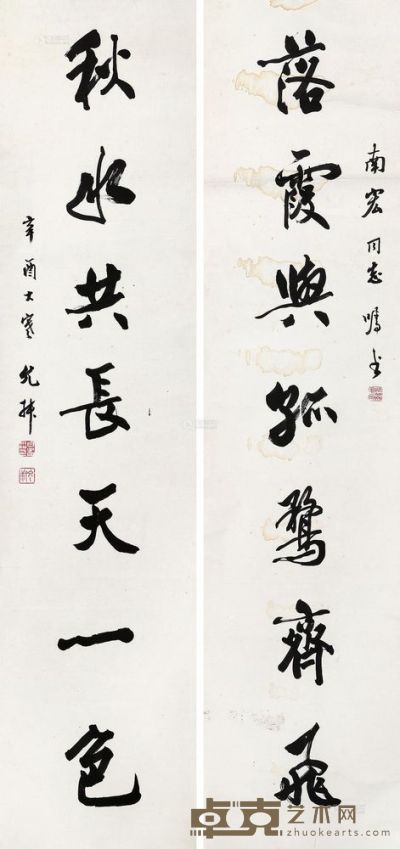 落霞與孤鶩齊飛
南宏同志嘱书
秋水共長天一色
辛酉大寒
卓克艺术网
zhuokearts.com